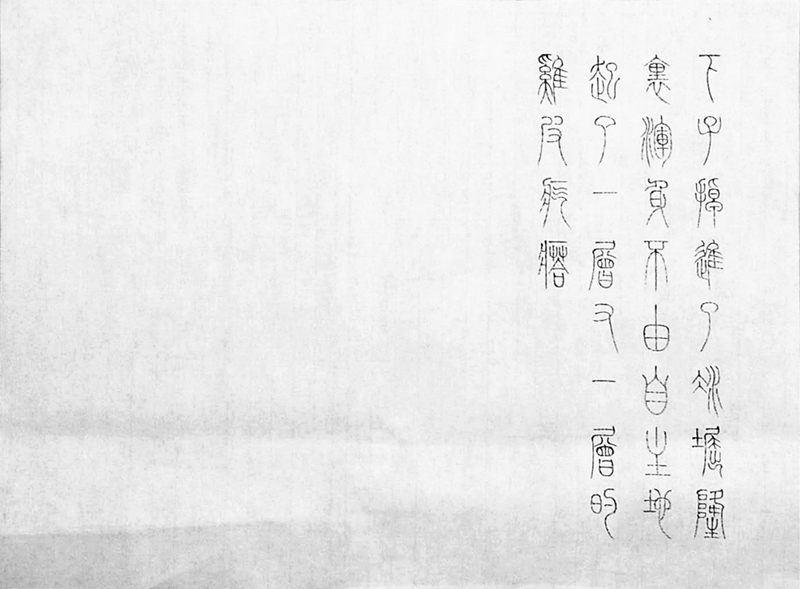 下子掉進了冰堀隆
裏渾身不由自主地
起了一層又一層的
雞皮疙瘩